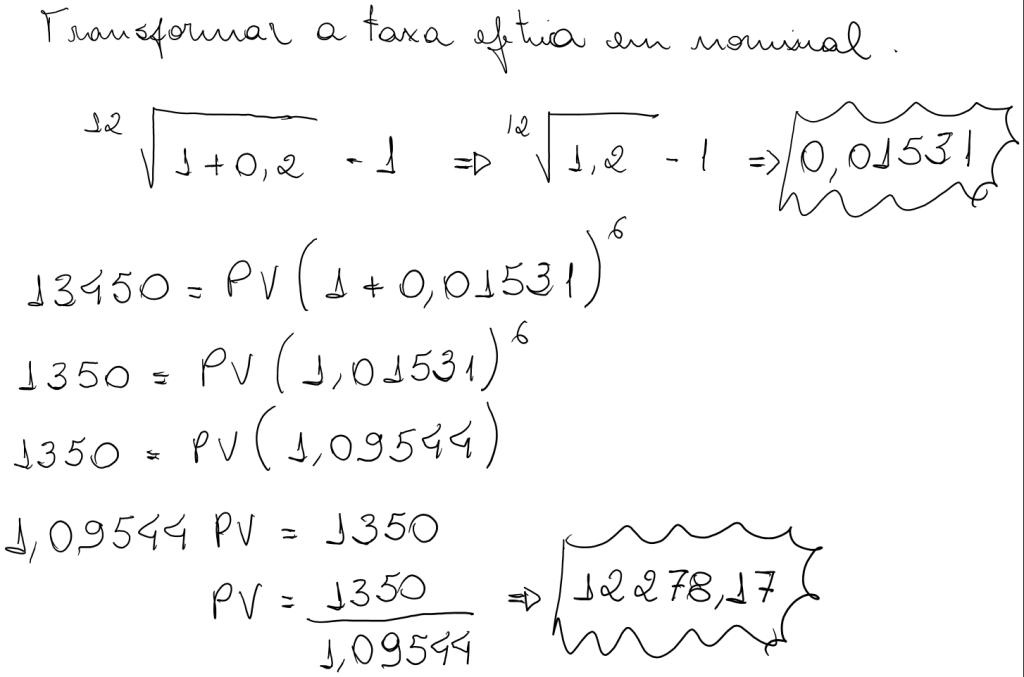 Transformar a taxa eftiva em nominal.
12√1+0,2 - 1 => 12√1,2 - 1 => 0,01531
13450 = PV(1+0,01531)6
1350 = PV(1,01531)6
1350 = PV(1,09544)
1,09544 PV = 1350
PV = 1350 => 12278,17
1,09544